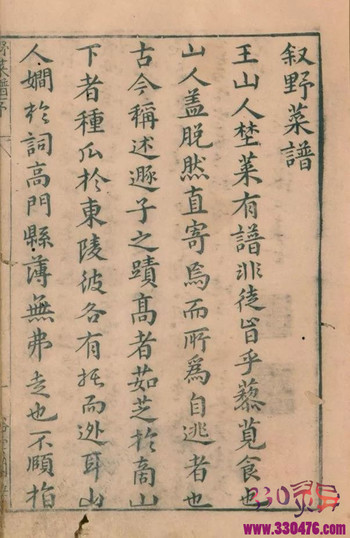 叙野菜譜
王山人埜菜有譜非徒旨乎藜莧食也
山人盖脫然直寄焉而所為自逃者也
古今稱述遯子之蹟髙者茹芝於商山
下者種瓜於東陵彼各有托而逊耳山
人嫺於詞高門縣薄無弗走也不願指
330476
www.330476.com